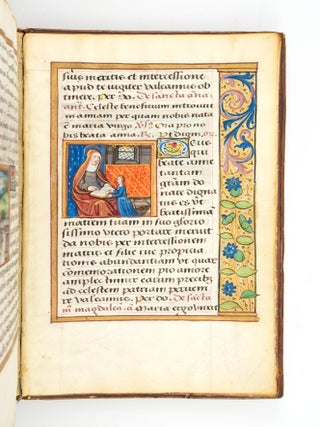 suis meritis et intercessione
apud te iugiter valeamus ob
tinere. Per do. De sancta ana
ant. Celeste beneficium introivit
in annam per quam nobis nata
est maria virgo. Ora pro no
bis beata anna. R. Ut digni. or.
Deus
qui
beate anne
tantam
gratiam do
nare digna
tus es ut
beatissimam
mariam tuam in suo glorio
sissimo utero portare meruit
da nobis per intercessionem
matris et filie tue propicia
tionis abundantiam ut quar
commemorationem pio amore
amplectimur earum precibus
ad celestem patriam pervenire
valeamus. Per do. De sancta
magdalen. a. Maria ergo unxit